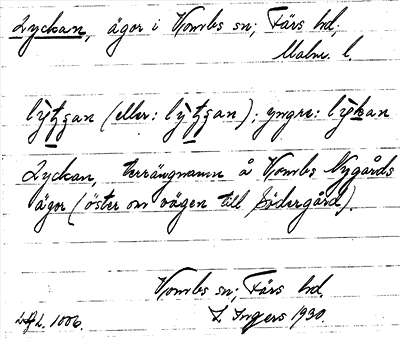 Lyckan, ägor i Vombs sn; Färs hd.
Malm. l.
(eller: ); yngre:
Lyckan, terrängnamn å Vombs Nygårds
ägor (öster om vägen till Södergård).
Vombs sn; Färs hd.
LAL. 1006. I. Ingers 1930.